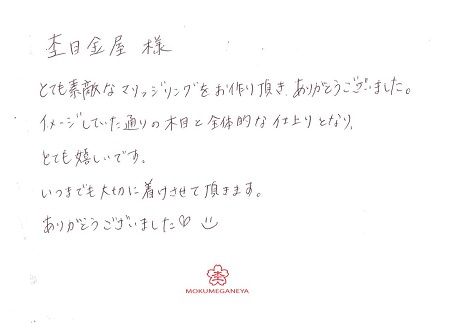 杢目金屋 様
とても素敵なマリッジリングをお作り頂き、ありがとうございました。
イメージしていた通りの木目と全体的な仕上りとなり、
とても嬉しいです。
いつまでも大切に着けさせて頂きます。
ありがとうございました♡ ☺
杢
MOKUMEGANEYA